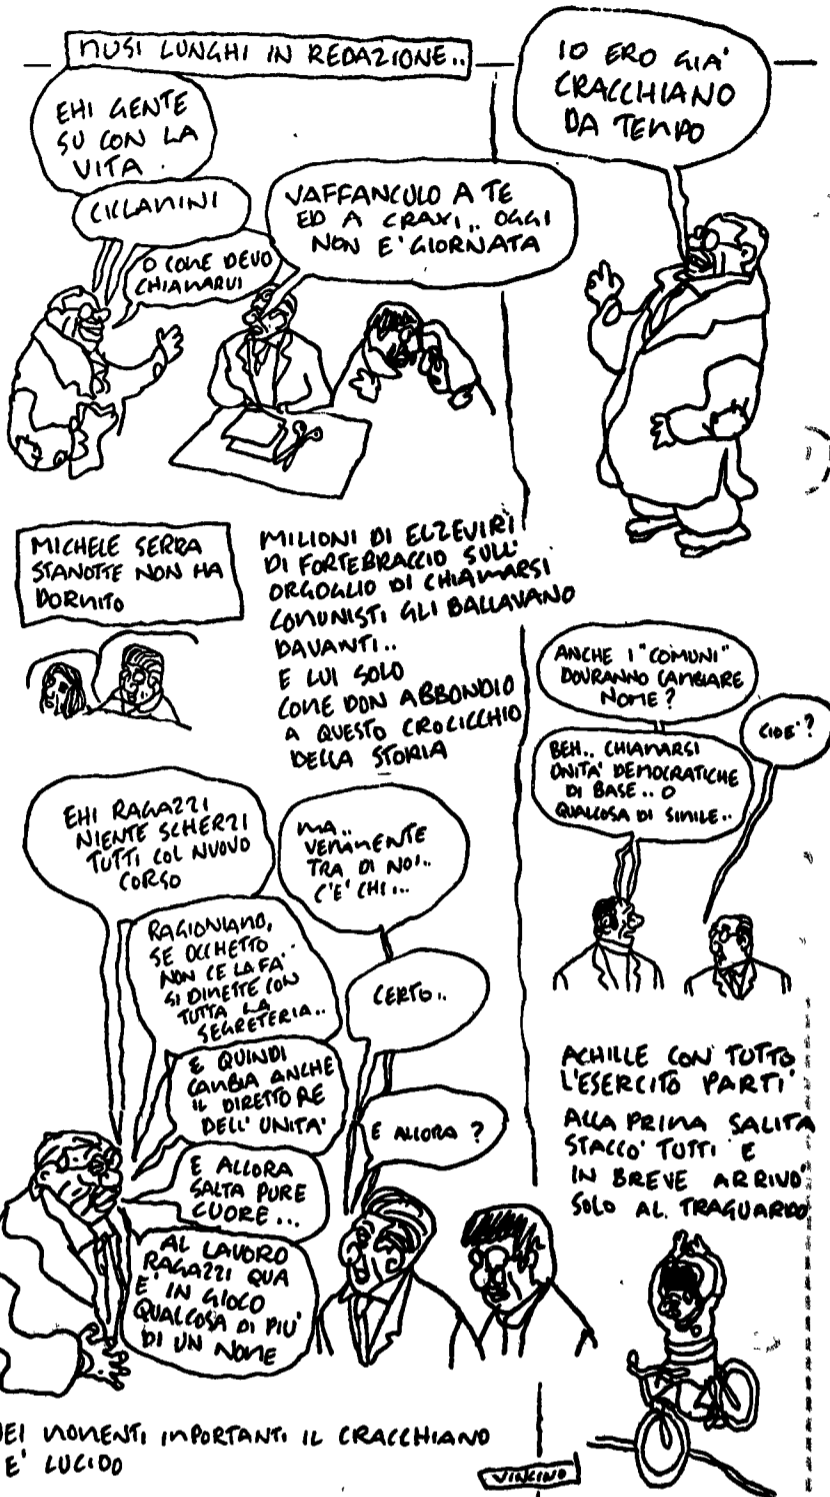 MUSI LUNGHI IN REDAZIONE..
EHI GENTE
SU CON LA
VITA.
CICLAMINI
O COME DEVO
CHIAMARVI
VAFFANCULO A TE
ED A CRAXI.. OGGI
NON E' GIORNATA
IO ERO GIA'
CRACCHIANO
DA TEMPO
MICHELE SERRA
STANOTTE NON HA
DORMITO
MILIONI DI ELZEVIRI
DI FORTEBRACCIO SULL'
ORGOGLIO DI CHIAMARSI
COMUNISTI GLI BALLAVANO
DAVANTI..
E LUI SOLO
COME DON ABBONDIO
A QUESTO CROCICCHIO
DELLA STORIA
ANCHE I "COMUNI"
DOVRANNO CAMBIARE
NOME?
CIOE'?
BEH.. CHIAMARSI
UNITA' DEMOCRATICHE
DI BASE.. O
QUALCOSA DI SIMILE..
EHI RAGAZZI
NIENTE SCHERZI
TUTTI COL NUOVO
CORSO
MA..
VERAMENTE
TRA DI NOI..
C'E' CHI...
RAGIONIAMO,
SE OCCHETTO
NON CE LA FA'..
SI DIMETTE CON
TUTTA LA
SEGRETERIA..
CERTO..
E QUINDI
CAMBIA ANCHE
IL DIRETTORE
DELL'UNITA'
E ALLORA?
E ALLORA
SALTA PURE
CUORE...
AL LAVORO
RAGAZZI QUA
E' IN GIOCO
QUALCOSA DI PIU'
DI UN NOME
NEI MOMENTI IMPORTANTI IL CRACCHIANO
E' LUCIDO
ACHILLE CON TUTTO
L'ESERCITO PARTI'
ALLA PRIMA SALITA
STACCO' TUTTI E
IN BREVE ARRIVO'
SOLO AL TRAGUARDO
VINCINO